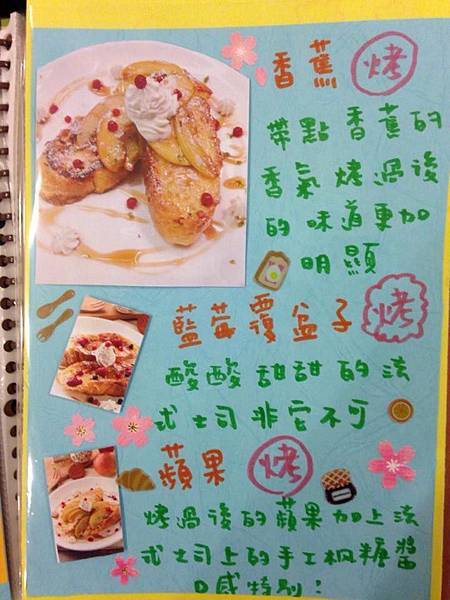 香蕉 烤
帶點香蕉的
香氣烤過後
的味道更加
明顯
藍莓覆盆子 烤
酸酸甜甜的法
式土司非它不可
蘋果 烤
烤過後的蘋果加上法
式土司上的手工楓糖醬
口感特別：